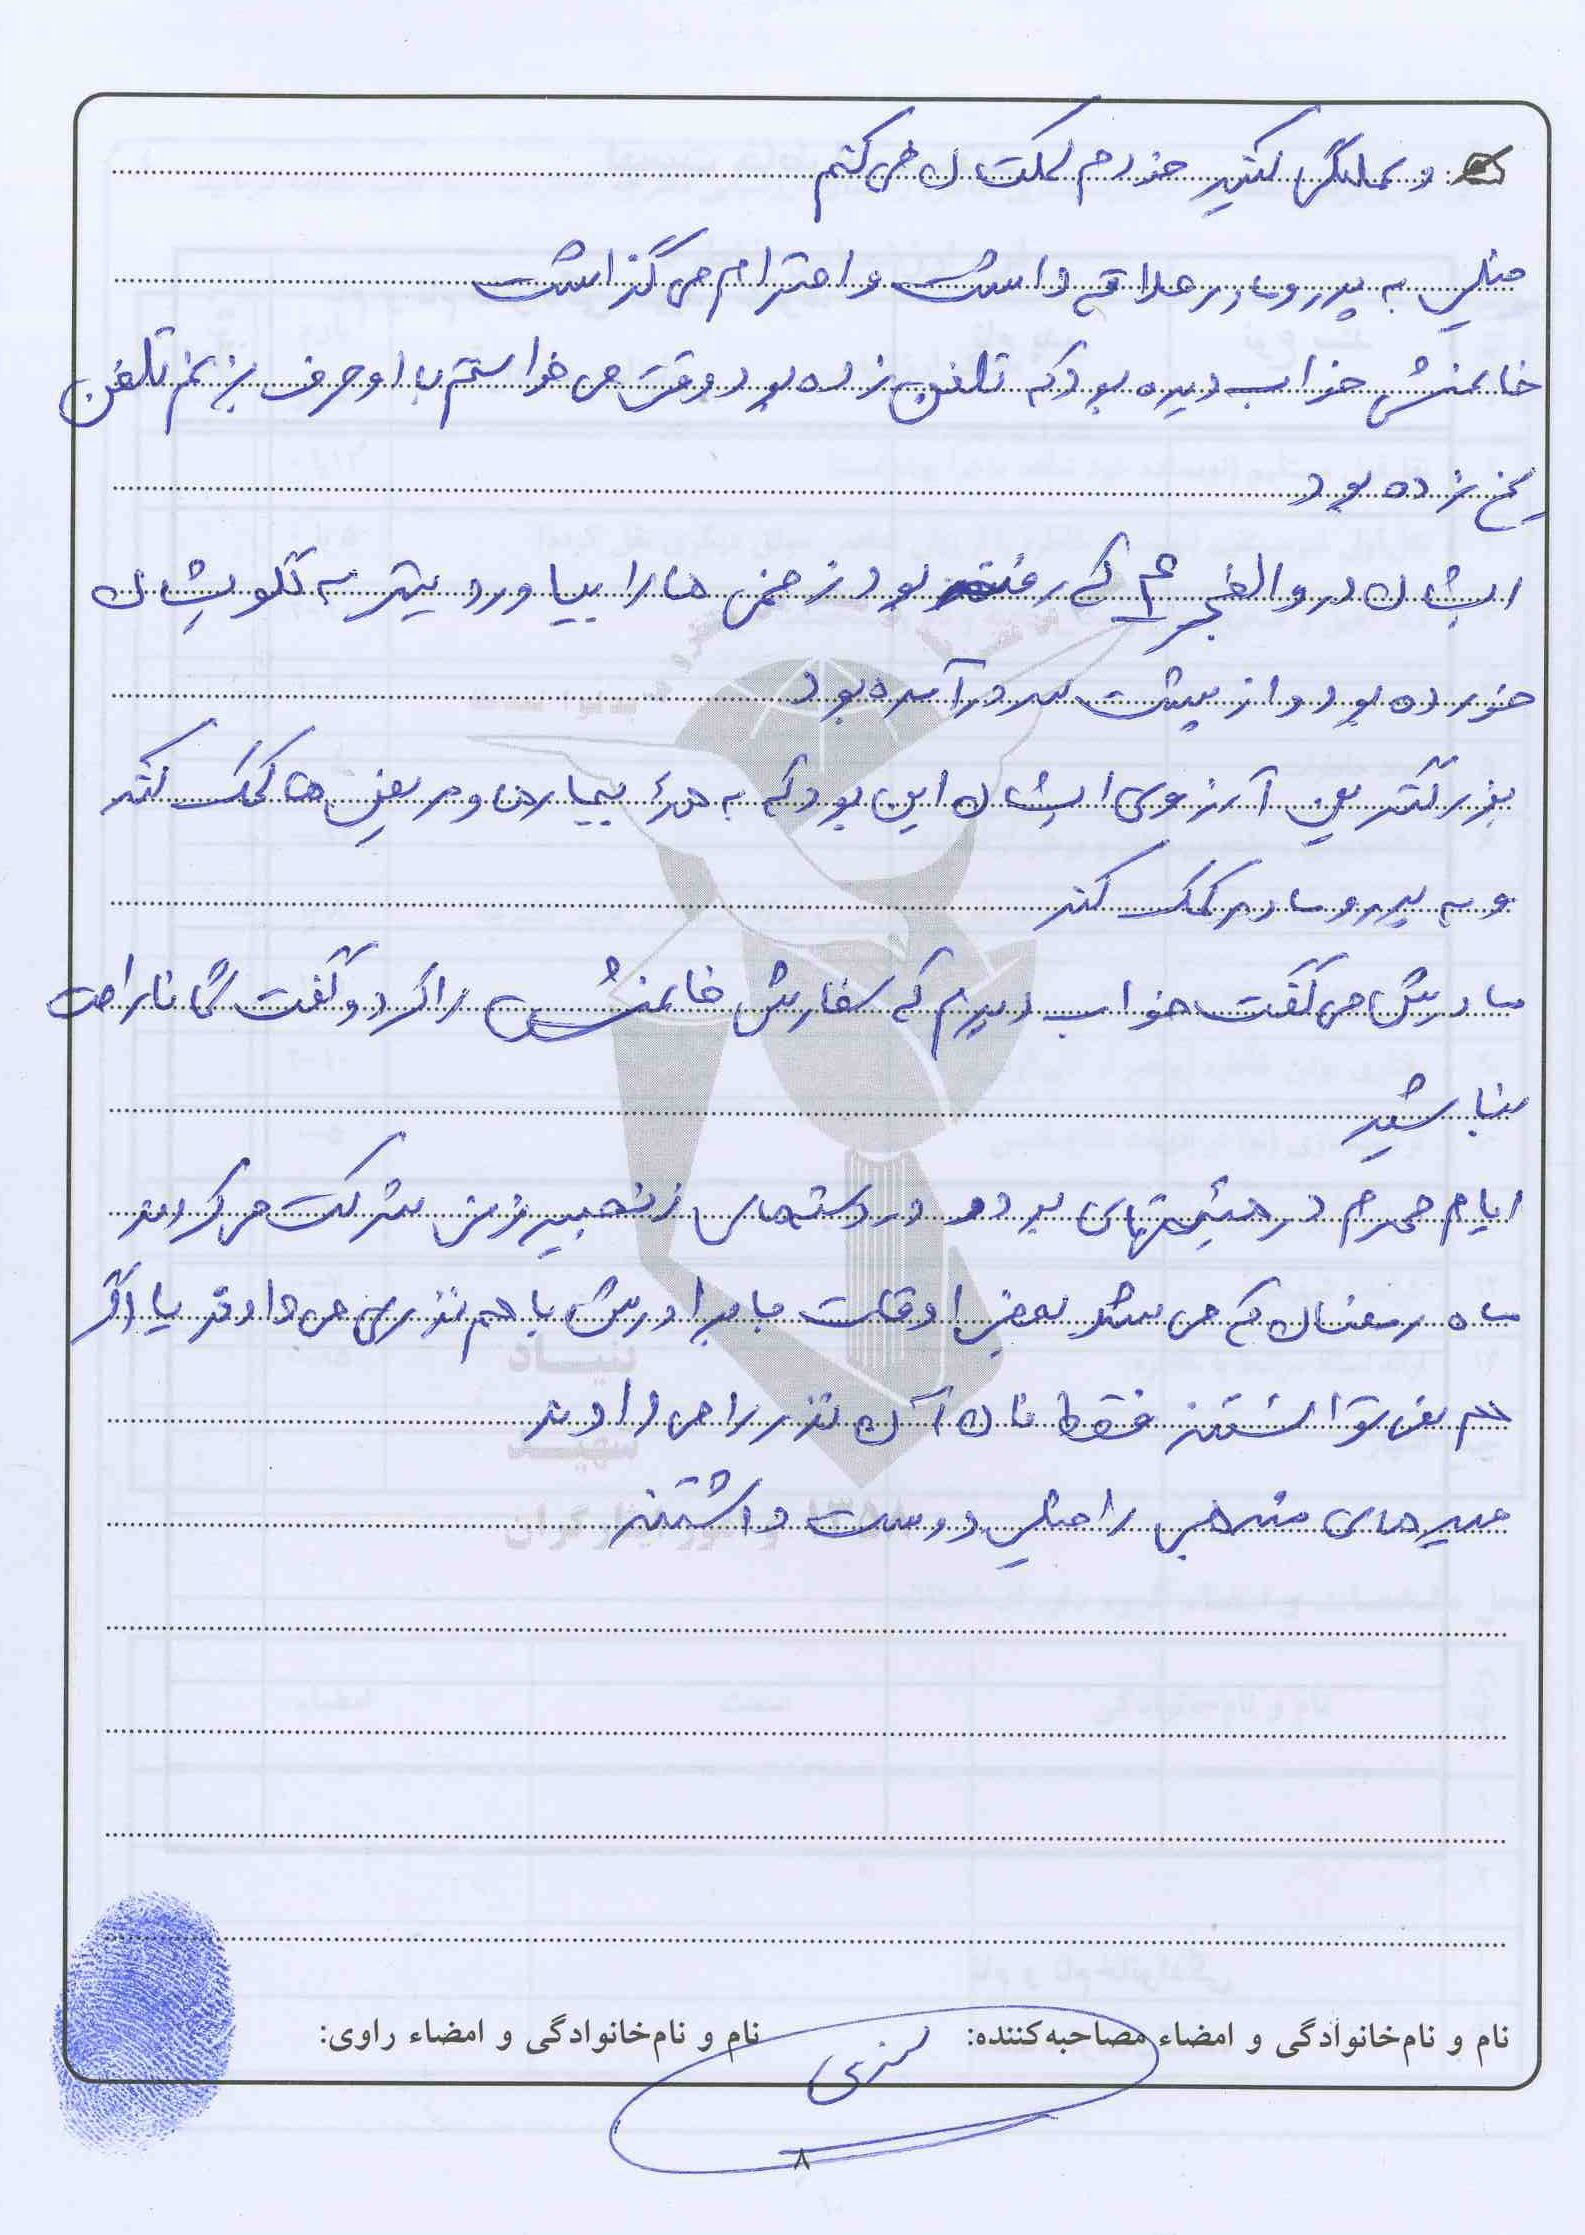 و عملگی کنید خودم کمکتان می کنم
خیلی به پدر و مادر علاقه داشت و احترام می گذاشت
خانمش خواب دیده بود که تلفن زده بود وقتی می خواستم با او حرف بزنم تلفن
یخ زده بود
ایشان در والفجر ۴ که رفته بود زخمی ها را بیاورد یتر به گلویشان
خورده بود و از پشت سر درآمده بود
بزرگترین آرزوی ایشان این بود که به همهٔ بیمارها و مریض ها کمک کند
و به پدر و مادر کمک کند
مادرش می گفت خواب دیدم که سفارش خانمش را کرد و گفت شما ناراحت
نباشید
ایام محرم در هیئتهای بود و در دستهای زنجیرزنی شرکت می کردند
ماه رمضان که می شد بعضی اوقات با برادرش با هم نذری می دادند یا اگر
هم نمی توانستند فقط نان آن نذر را می دادند
میرهای مذهبی را خیلی دوست داشتند
بنیاد
شهید
و امور ایثارگران
نام و نام‌خانوادگی و امضاء مصاحبه‌کننده: نام و نام‌خانوادگی و امضاء راوی:
۸